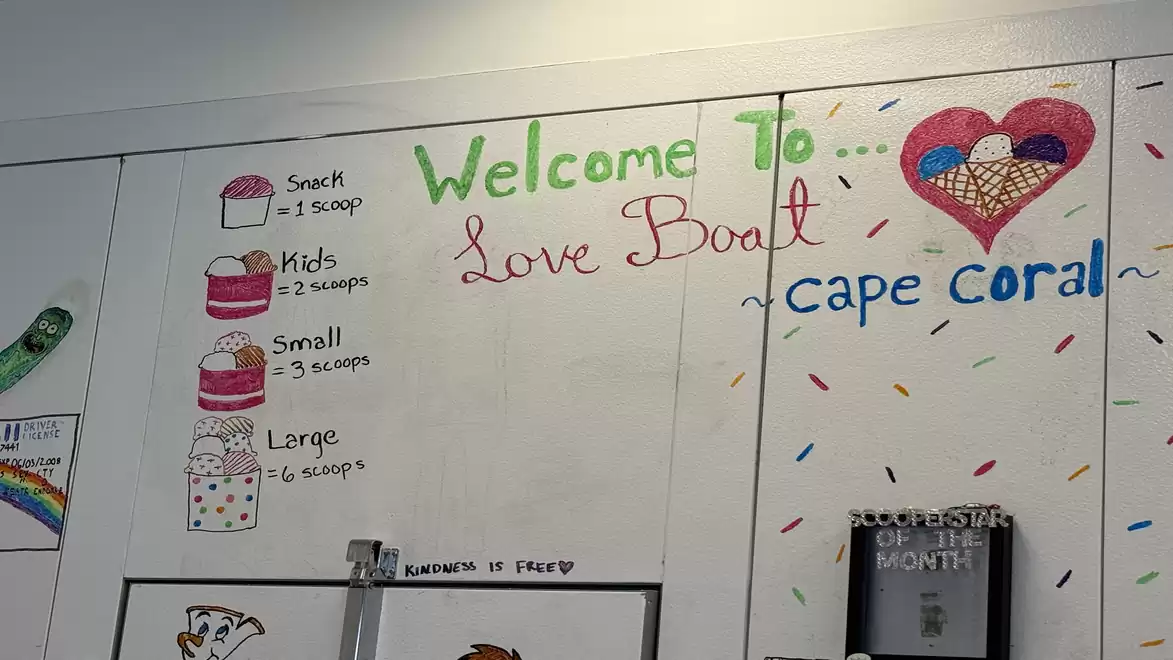 Welcome To...
Love Boat
~ cape coral ~
Snack
= 1 scoop
Kids
= 2 scoops
Small
= 3 scoops
Large
= 6 scoops
KINDNESS IS FREE♥
SCOOPERSTAR
OF THE
MONTH
DRIVER
LICENSE
7441
06/03/2008